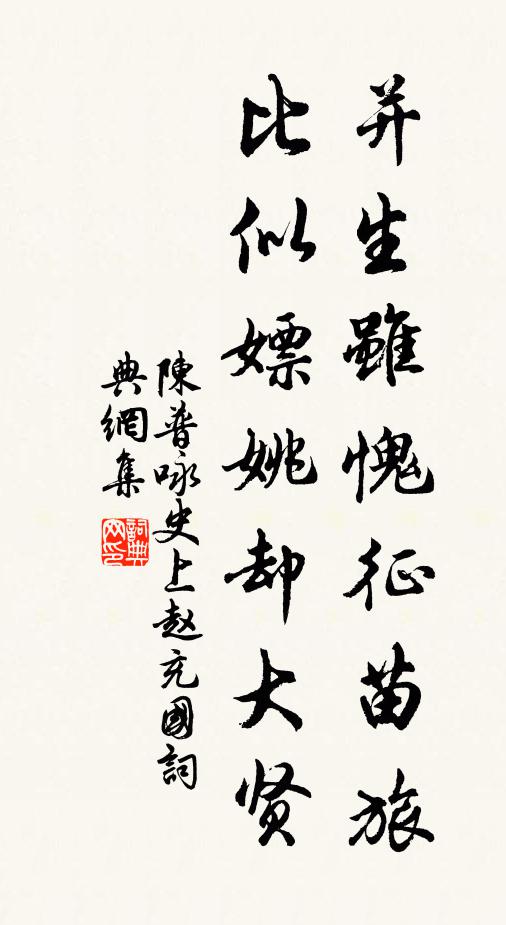 并生雖愧征苗旅
比似嫖姚却大贤
陳普咏史上赵充國詞
典網集
詞典
网印